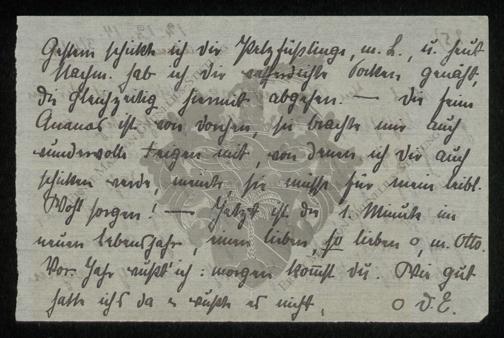 Gestern schickte ich dir Pelzfüßlinge, m. L., u. heut
Nachm. hab ich dir Socken genäht,
die gleichzeitig hiermit abgehen. — Die feine
Ananas ist von Dorchen, sie brachte mir auch
wundervolle Feigen mit, von denen ich dir auch
schicken werde, meinte, sie müsse für mein leibl.
Wohl sorgen! — Jetzt ist die 1. Minute im
neuen Lebensjahr, mein lieben, so lieben o, m. Otto.
Vor. Jahr wußt' ich: morgen kommst du. Wie gut
hatte ichs da u wußte es nicht.
O d. E.